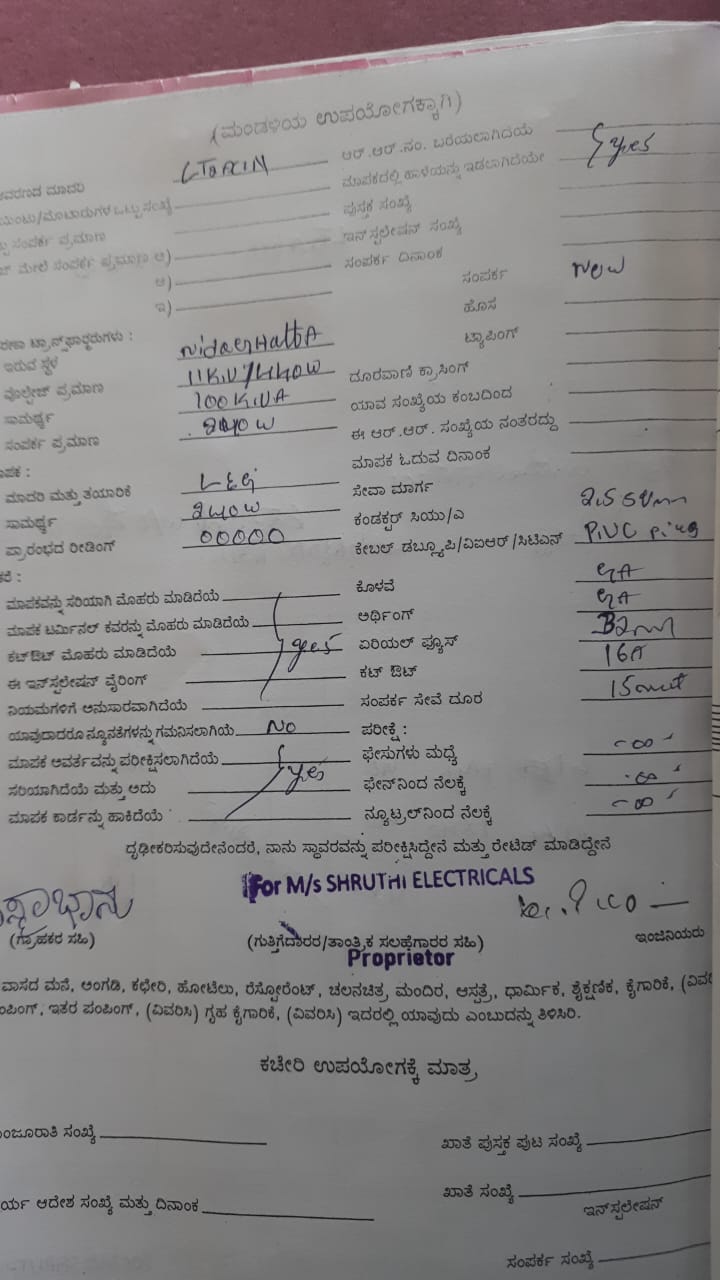 (ಮಂಡಳಿಯ ಉಪಯೋಗಕ್ಕಾಗಿ)
ಆವರಣದ ಮಾದರಿ ಆರ್.ಆರ್.ನಂ. ಬರೆಯಲಾಗಿದೆಯೆ yes
ಮಾಪಕದಲ್ಲಿ ಹಾಳೆಯನ್ನು ಇಡಲಾಗಿದೆಯೇ
ಪುಸ್ತಕ ಸಂಖ್ಯೆ
ಸಂಪರ್ಕ ಪ್ರಮಾಣ ಇನ್‌ಸ್ಟಲೇಷನ್ ಸಂಖ್ಯೆ
ಮೇಲೆ ಸಂಪರ್ಕ ಪ್ರಮಾಣ ಅ) ಸಂಪರ್ಕ ದಿನಾಂಕ
ಆ) ಸಂಪರ್ಕ New
ಇ) ಹೊಸ
ಟ್ರಾನ್ಸ್‌ಫಾರ್ಮರುಗಳು : ಟ್ಯಾಪಿಂಗ್
ಇರುವ ಸ್ಥಳ
ವೋಲ್ಟೇಜ್ ಪ್ರಮಾಣ 11KV/440W ದೂರವಾಣಿ ಕ್ರಾಸಿಂಗ್
ಸಾಮರ್ಥ್ಯ 100KVA ಯಾವ ಸಂಖ್ಯೆಯ ಕಂಬದಿಂದ
ಸಂಪರ್ಕ ಪ್ರಮಾಣ 240W ಈ ಆರ್.ಆರ್. ಸಂಖ್ಯೆಯ ನಂತರದ್ದು
ಮಾಪಕ ಓದುವ ದಿನಾಂಕ
ಮಾದರಿ ಮತ್ತು ತಯಾರಿಕೆ L&G ಸೇವಾ ಮಾರ್ಗ
ಸಾಮರ್ಥ್ಯ 240W ಕಂಡಕ್ಟರ್ ಸಿಯು/ಎ 2.5 SVmm
ಪ್ರಾರಂಭದ ರೀಡಿಂಗ್ 00000 ಕೇಬಲ್ ಡಬ್ಲ್ಯೂಪಿ/ವಿಐಆರ್/ಸಿಟಿಎಸ್ PVC
ಕೊಳವೆ GA
ಮಾಪಕವನ್ನು ಸರಿಯಾಗಿ ಮೊಹರು ಮಾಡಿದೆಯೆ ಅರ್ಥಿಂಗ್ GA
ಮಾಪಕ ಟರ್ಮಿನಲ್ ಕವರನ್ನು ಮೊಹರು ಮಾಡಿದೆಯೆ yes ಏರಿಯಲ್ ಫ್ಯೂಸ್
ಕಟ್‌ಔಟ್ ಮೊಹರು ಮಾಡಿದೆಯೆ ಕಟ್ ಔಟ್ 16A
ಈ ಇನ್‌ಸ್ಟಲೇಷನ್ ವೈರಿಂಗ್
ನಿಯಮಗಳಿಗೆ ಅನುಸಾರವಾಗಿದೆಯೆ ಸಂಪರ್ಕ ಸೇವೆ ದೂರ
ಯಾವುದಾದರೂ ನ್ಯೂನತೆಗಳನ್ನು ಗಮನಿಸಲಾಗಿಯೆ No ಪರೀಕ್ಷೆ :
ಮಾಪಕ ಆವರ್ತವನ್ನು ಪರೀಕ್ಷಿಸಲಾಗಿದೆಯೆ yes ಫೇಸುಗಳು ಮಧ್ಯೆ -∞
ಸರಿಯಾಗಿದೆಯೆ ಮತ್ತು ಅದು ಫೇಸ್‌ನಿಂದ ನೆಲಕ್ಕೆ -∞
ಮಾಪಕ ಕಾರ್ಡನ್ನು ಹಾಕಿದೆಯೆ ನ್ಯೂಟ್ರಲ್‌ನಿಂದ ನೆಲಕ್ಕೆ -∞
ದೃಢೀಕರಿಸುವುದೇನೆಂದರೆ, ನಾನು ಸ್ಥಾವರವನ್ನು ಪರೀಕ್ಷಿಸಿದ್ದೇನೆ ಮತ್ತು ರೇಟೆಡ್ ಮಾಡಿದ್ದೇನೆ
For M/s SHRUTHI ELECTRICALS
(ಗ್ರಾಹಕರ ಸಹಿ) (ಗುತ್ತಿಗೆದಾರರ/ತಾಂತ್ರಿಕ ಸಲಹೆಗಾರರ ಸಹಿ) ಇಂಜಿನಿಯರು
Proprietor
ವಾಸದ ಮನೆ, ಅಂಗಡಿ, ಕಛೇರಿ, ಹೋಟೆಲು, ರೆಸ್ಟೋರೆಂಟ್, ಚಲನಚಿತ್ರ ಮಂದಿರ, ಆಸ್ಪತ್ರೆ, ಧಾರ್ಮಿಕ, ಶೈಕ್ಷಣಿಕ, ಕೈಗಾರಿಕೆ,
ಇತರ ಪಂಪಿಂಗ್, (ವಿವರಿಸಿ) ಗೃಹ ಕೈಗಾರಿಕೆ, (ವಿವರಿಸಿ) ಇದರಲ್ಲಿ ಯಾವುದು ಎಂಬುದನ್ನು ತಿಳಿಸಿರಿ.
ಕಚೇರಿ ಉಪಯೋಗಕ್ಕೆ ಮಾತ್ರ
ಸಂಖ್ಯೆ ಖಾತೆ ಪುಸ್ತಕ ಪುಟ ಸಂಖ್ಯೆ
ಆದೇಶ ಸಂಖ್ಯೆ ಮತ್ತು ದಿನಾಂಕ ಖಾತೆ ಸಂಖ್ಯೆ
ಇನ್‌ಸ್ಟಲೇಷನ್
ಸಂಪರ್ಕ ಸಂಖ್ಯೆ